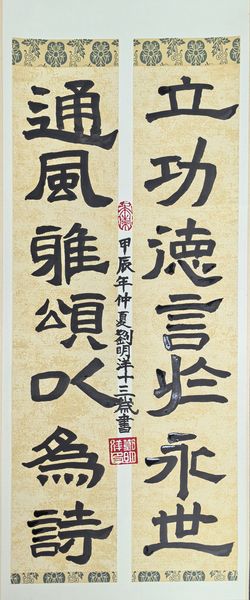 立功德言於永世
通風雅頌以為詩
甲辰年仲夏劉明洋十三歲書